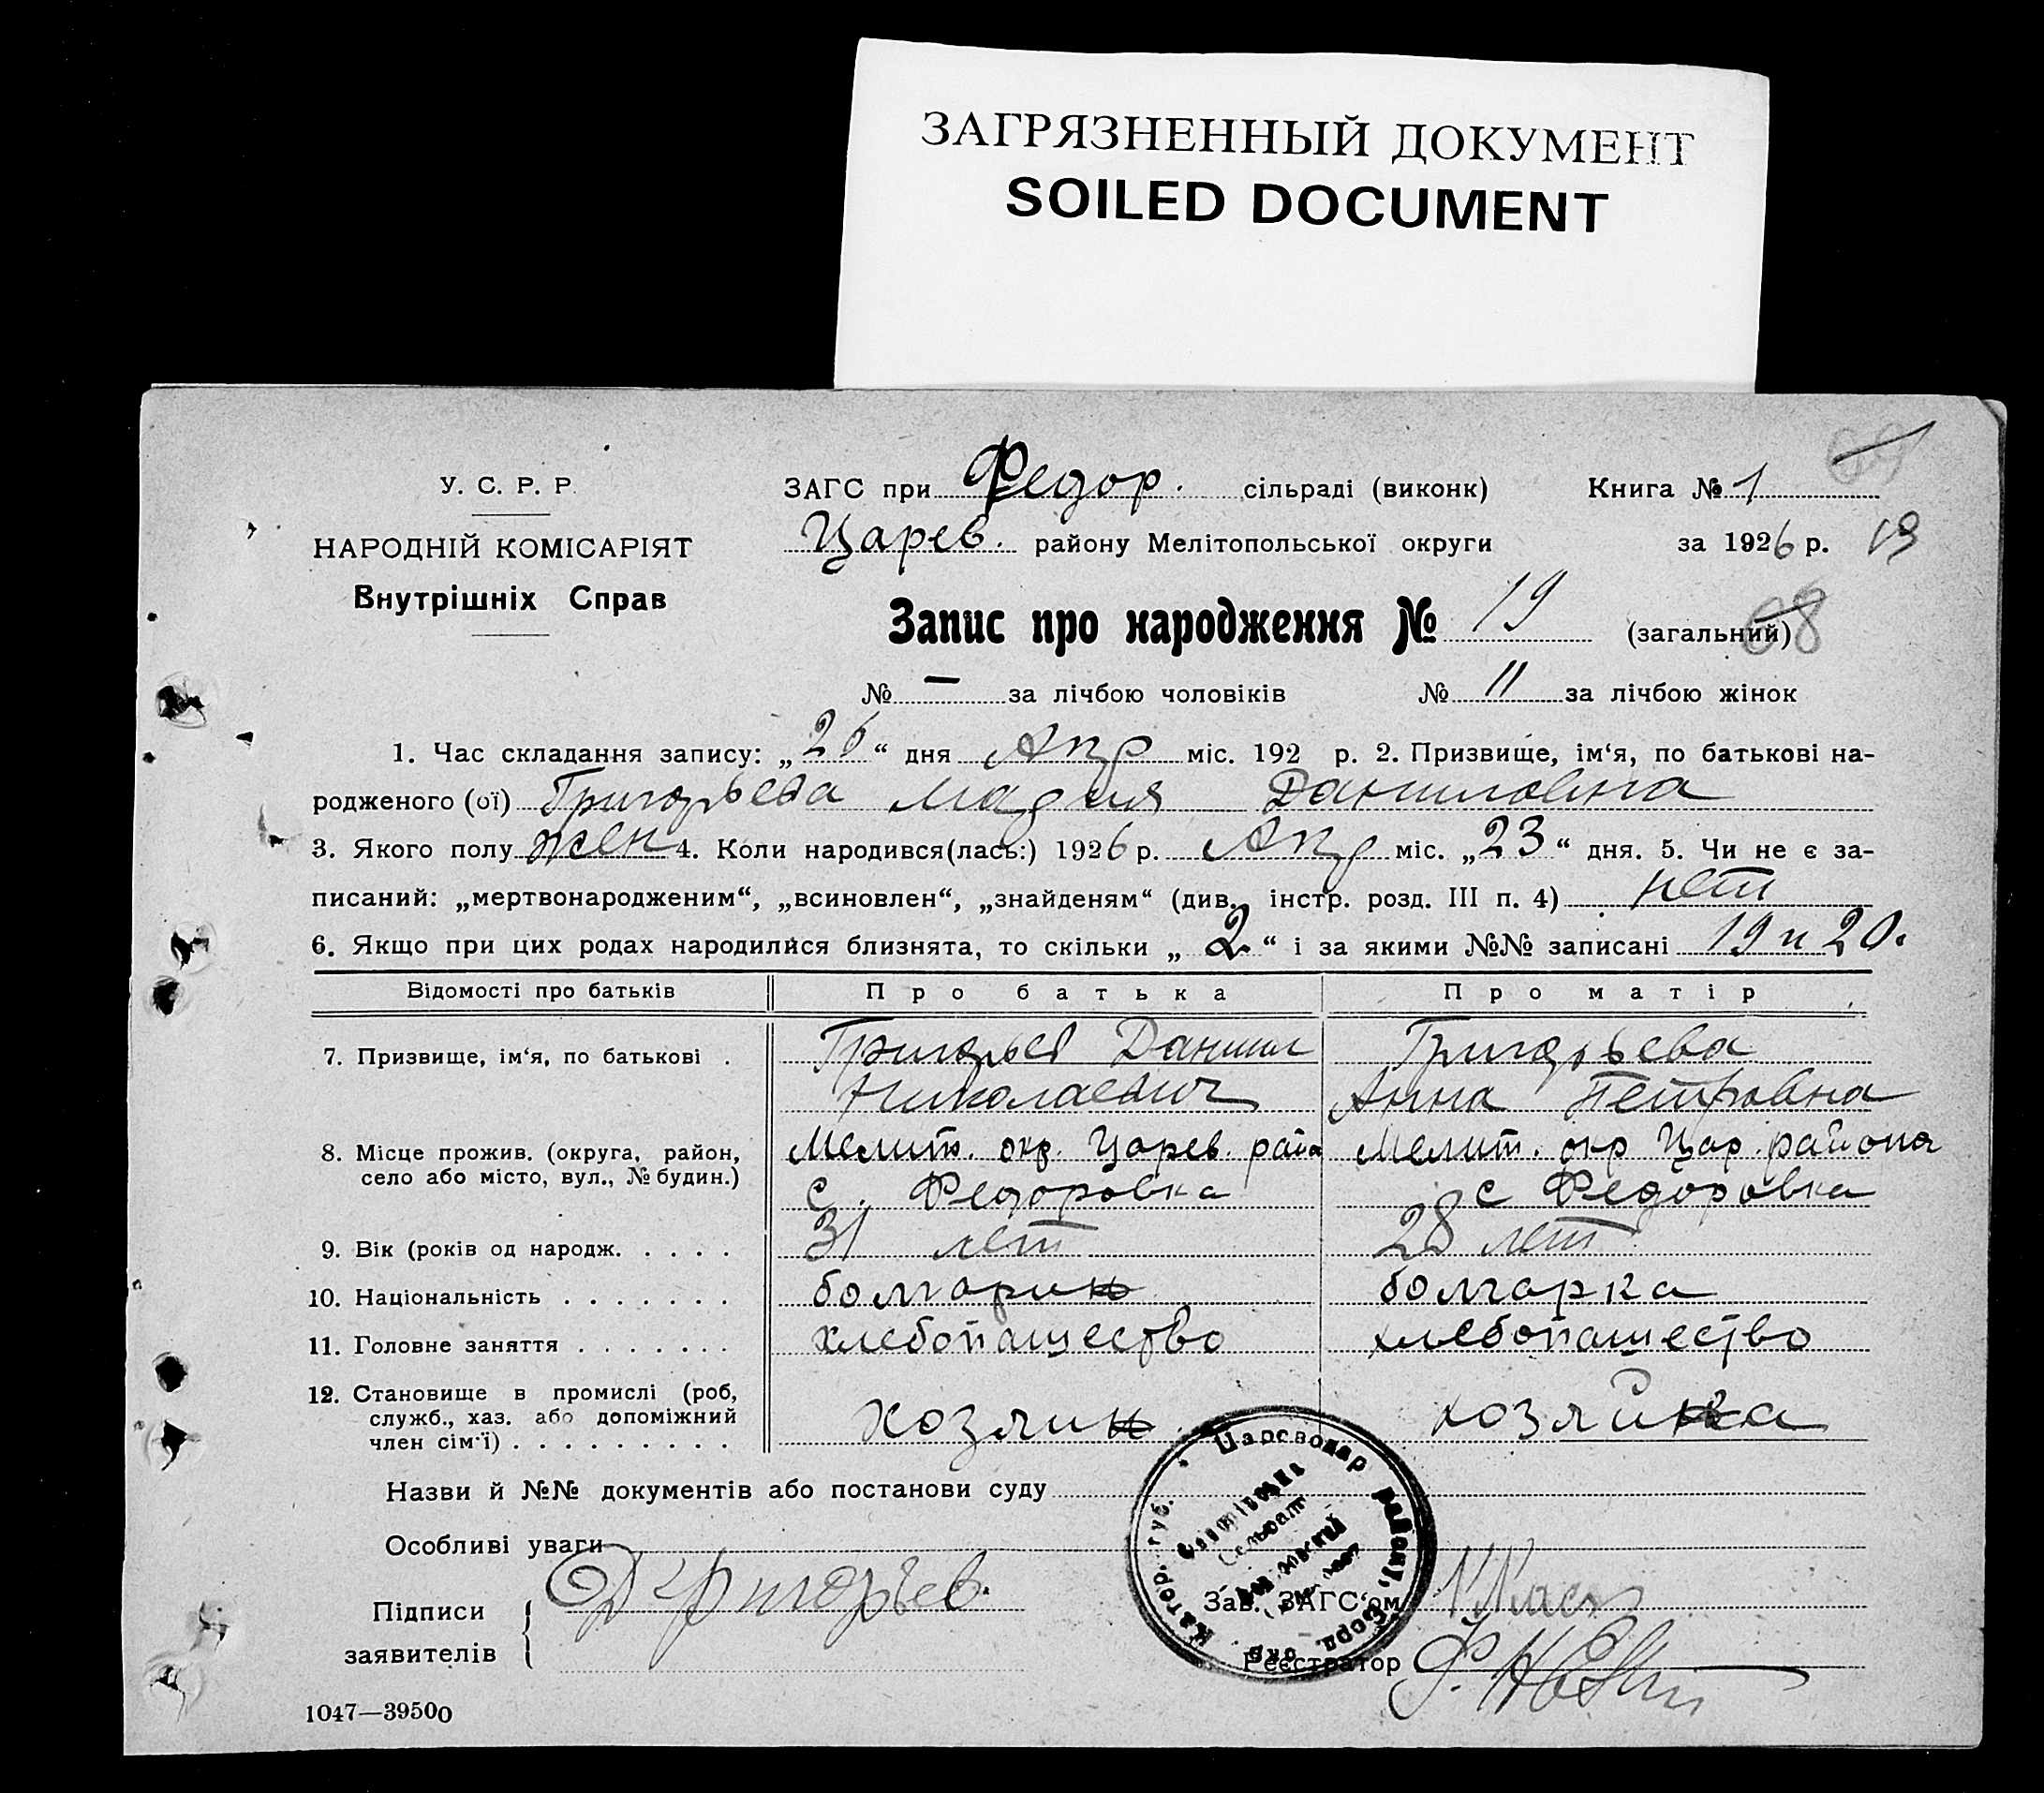 ЗАГРЯЗНЕННЫЙ ДОКУМЕНТ
SOILED DOCUMENT
У. С. Р. Р.
НАРОДНІЙ КОМІСАРІЯТ
Внутрішніх Справ
ЗАГС при Федор. сільраді (виконк) Книга № 1
Царев. району Мелітопольської округи за 1926 р. 19
Запис про народження № 19 (загальний) 68
№ — за лічбою чоловіків № 11 за лічбою жінок
1. Час складання запису: „26“ дня Апр міс. 192 р. 2. Призвище, ім‘я, по батькові на-
родженого (ої) Григорьева Мария Даниловна
3. Якого полу жен 4. Коли народився(лась:) 1926 р. Апр міс. „23“ дня. 5. Чи не є за-
писаний: „мертвонародженим“, „всиновлен“, „знайденям“ (див. інстр. розд. III п. 4) нет
6. Якщо при цих родах народилися близнята, то скільки „2“ і за якими №№ записані 19 и 20.
Відомості про батьків Про батька Про матір
7. Призвище, ім‘я, по батькові . Григорьев Данил Григорьева
Николаевич Анна Петровна
8. Місце прожив. (округа, район, Мелит. окр. Царев. райо Мелит. окр Цар. района
село або місто, вул., № будин.) с. Федоровка с Федоровка
9. Вік (років од народж. . . . . 31 лет 28 лет
10. Національність . . . . . . . болгарин болгарка
11. Головне заняття . . . . . . . хлебопашество хлебопашество
12. Становище в промислі (роб,
служб., хаз. або допоміжний хозяин хозяйка
член сім‘ї) . . . . . . . . .
Назви й №№ документів або постанови суду
Особливі уваги
Цареводар районі, Борд. окр. Катор. губ.
Підписи Д Григорьев. Зав. ЗАГС‘ом
заявителів Реєстратор
1047—39500